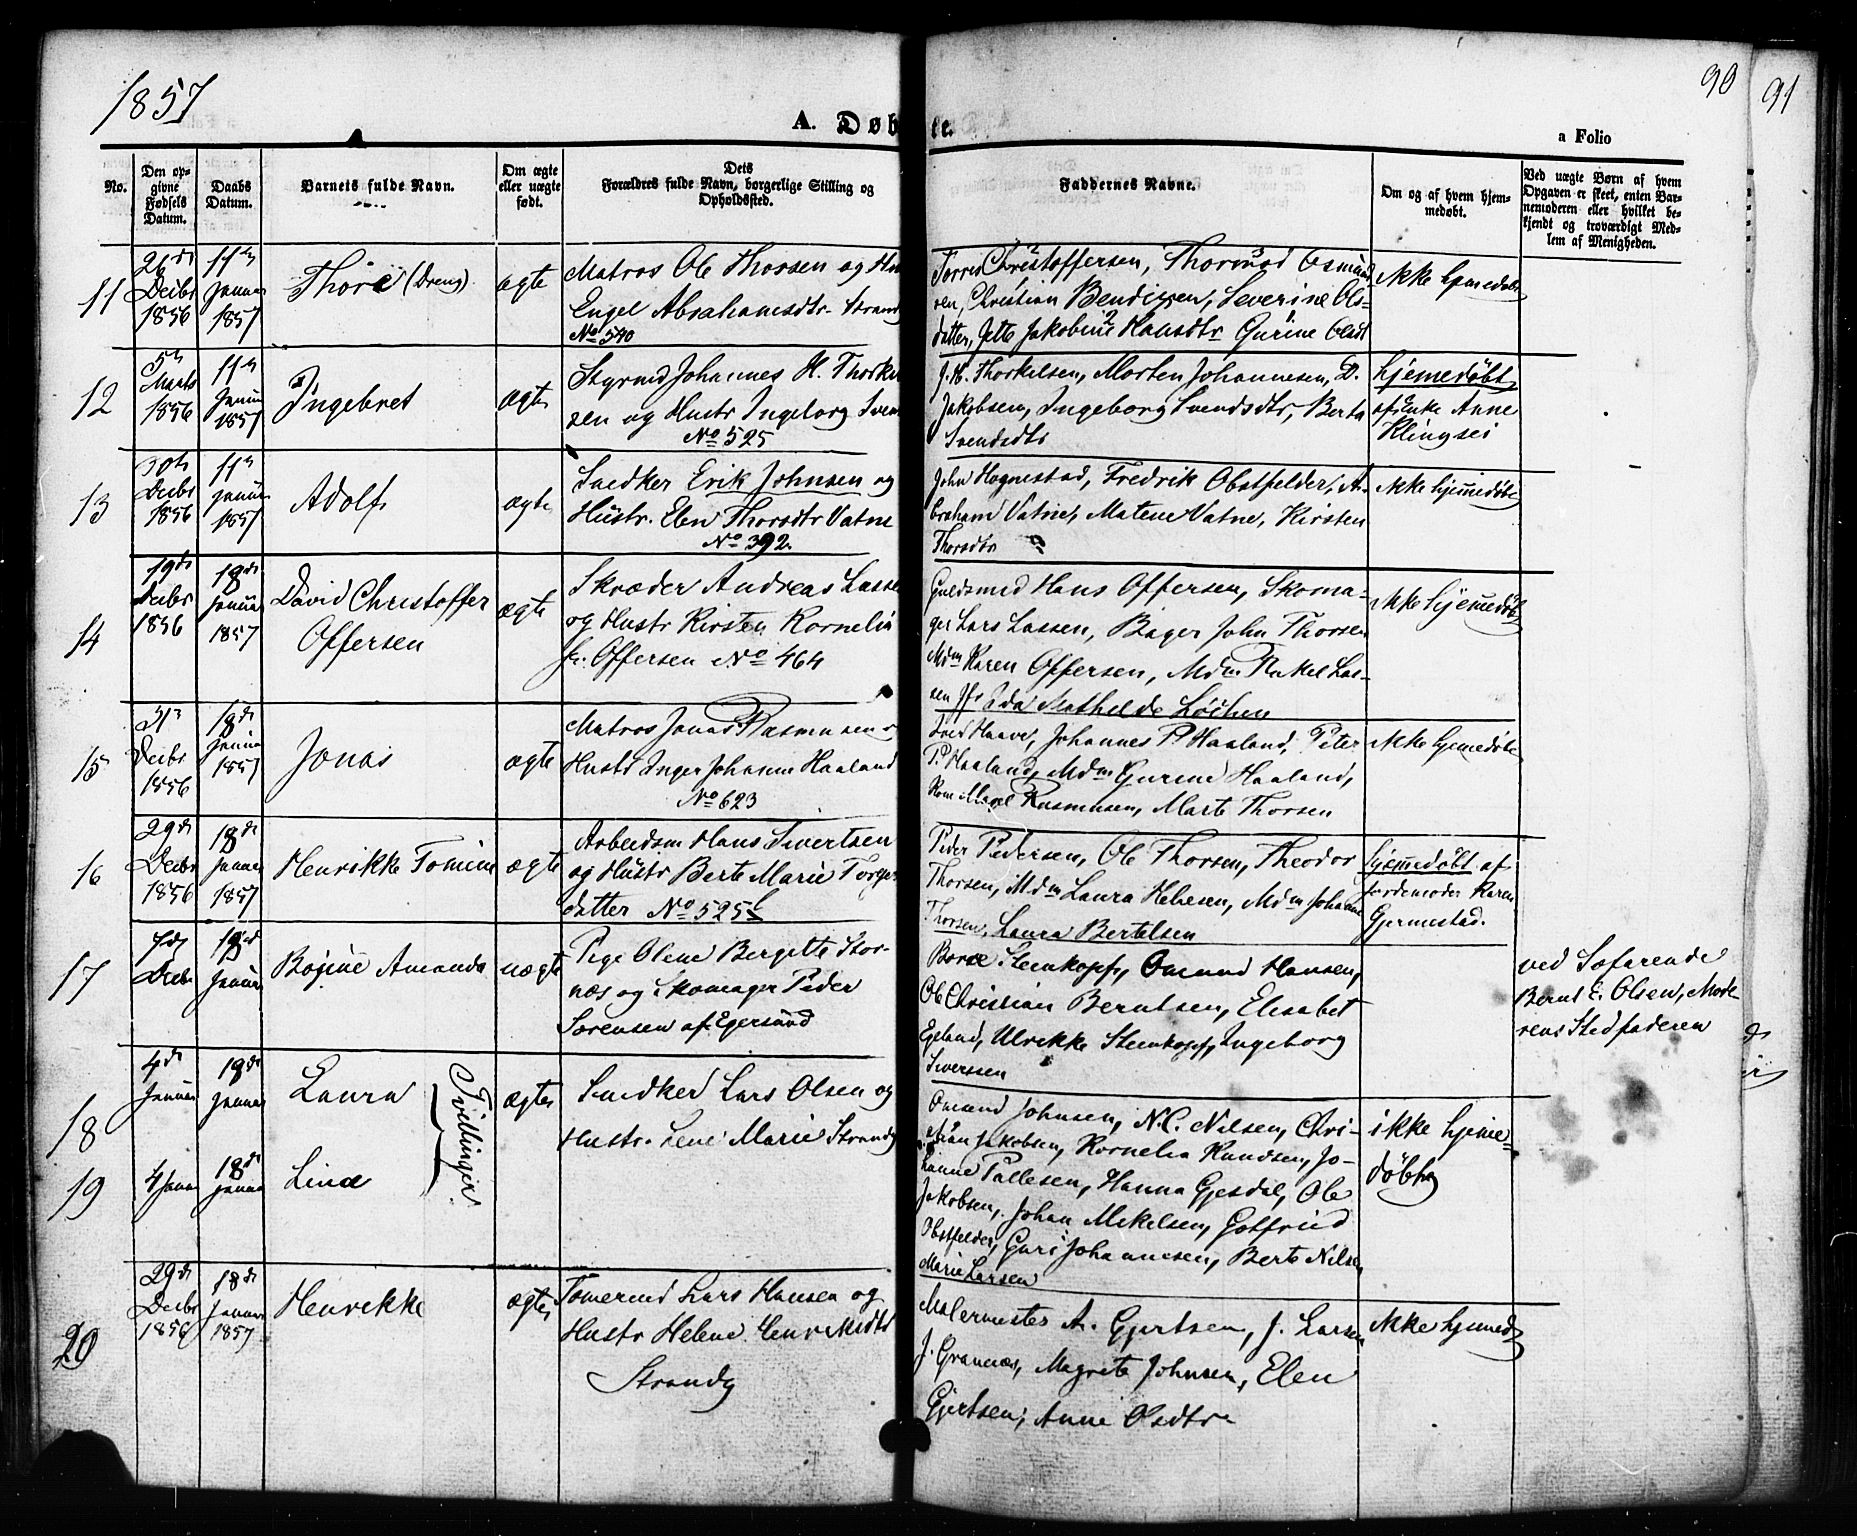 1857
90
91
A. Døb
te.
a Folio
No.
Den op-
givne
Fødsels
Datum.
Daabs
Datum.
Barnets fulde Navn.
Om ægte
eller uægte
født.
Dets
Forældres fulde Navn, borgerlige Stilling og
Opholdssted.
Faddernes Navne.
Om og af hvem hjem-
medøbt.
Ved uægte Børn af hvem
Opgaven er skeet, enten Bar-
nemoderen eller hvilket be-
kjendt og troværdigt Med-
lem af Menigheden.
11
26de
Decbr
1856
11te
Januar
1857
Thore (Dreng)
ægte
Matros Ole Thorsen og
Engel Abrahamsdtr. Strand
No 540
Torres Christoffersen, Thormod Osmund
sen, Christian Bendixen, Severine Ols-
datter, Jette Jakobine Hansdtr Gurine Olsdt
ikke hjemedøbt
12
5te
Marts
1856
11te
Januar
1857
Ingebret
ægte
Styrmd Johannes H. Thorkel
sen og Hustr Ingeborg Svend
No 525
J. H. Thorkelsen, Morten Johannesen, D.
Jakobsen, Ingeborg Svendsdtr, Berta
Svendsdtr
hjemedøbt
af Enke Anne
Klingsei
13
30te
Decbr
1856
11te
Januar
1857
Adolf
ægte
Snedker Erik Johnsen og
Hustr. Elen Thorsdtr Vatne
No 392.
John Hognestad, Fredrik Obstfelder, A-
braham Vatne, Matene Vatne, Kirsten
Thorsdtr
ikke hjemmedøbt
14
19de
Decbr
1856
18de
Januar
1857
David Christoffer
Offersen
ægte
Skræder Andreas Lassen
og Hustr Kirsten Kornelia
f. Offersen No 464
Guldsmed Hans Offersen, Skoma-
ger Lars Lassen, Bager John Thorsen
Mdm Karen Offersen, Mdm Rakel Las-
sen Jfr Ida Mathilde Løchen
ikke hjemmedøbt
15
31te
Decbr
1856
18de
Januar
1857
Jonas
ægte
Matros Jonas Rasmussen
Hustr Inger Johanne Haaland
No 623
Haave, Johannes P. Haaland, Peter
P. Haaland, Mdm Gurine Haaland,
Rasmusen, Marte Thorsen
ikke hjemedøbt
16
29de
Decbr
1856
18de
Januar
1857
Henrikke Tomine
ægte
Arbeidsm Hans Sivertsen
og Hustr Berte Marie Torger
datter No 525
Peder Pedersen, Ole Thorsen, Theodor
Thorsen, Mdm Laura Heliesen, Mdm Johanne
Thorsen, Laura Bertelsen
Hjemmedøbt af
Jordemoder Karen
Gjermestad.
17
7de
Decbr
18de
Januar
Bojine Amanda
uægte
Pige Olene Bergitte Stor-
næs og Skomager Peder
Sørensen af Egersund
Børre Steenkopf, Omund Hansen,
Ole Christian Berntsen, Elisabet
Egeland, Ulrikke Steenkopf, Ingeborg
Siverssen
ved Søfarende
Bernt E. Olsen, Mode-
rens Stedfaderen
18
4de
Januar
18de
Januar
Laura
Tvillinger
ægte
Snedker Lars Olsen og
Hustr. Lene Marie Strand
Omund Johnsen, N. C. Nilsen, Chri-
stian Jakobsen, Kornelia Knudsen, Jo-
hanne Pallesen, Hanna Gjesdal, Ole
Jakobsen, Johan Mikelsen, Gotfried
Obstfelder, Guri Johannesen, Berte Nilsen
Marie Larsen
ikke hjeme-
døbt
19
4 Janu
18de
Januar
Lina
20
29de
Decbr
1856
18de
Januar
1857
Henrikke
ægte
Tømermd Lars Hansen og
Hustr Helene Henriksdtr
Strand
Malermester A. Gjertsen, J. Larsen
J. Grannes, Magrete Johnsen, Elen
Gjertsen, Anne Olsdtr
ikke hjemed